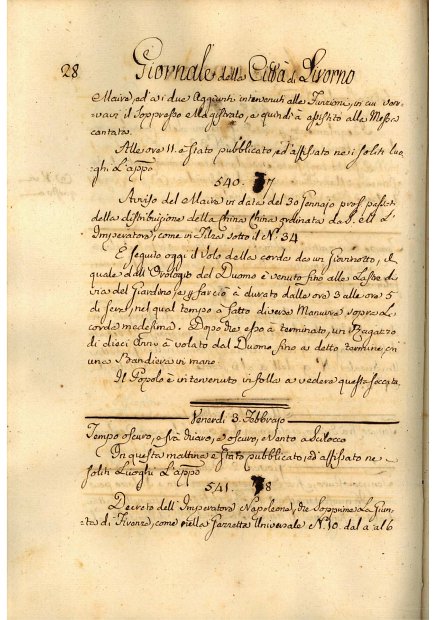 28 Giornale della Città di Livorno
Maire, ed ai due Aggiunti intervenuti alle Funzioni, in cui
il Soppresso Magistrato, e quindi à assistito alla Messa
cantata.
Alle ore 11. è stato pubblicato, ed affissato nei soliti luo-
ghi L'appo
540. 7
Avviso del Maire in data del 30 Gennajo pross. passato
della distribuzione della China China ordinata da S. M. L'
Imperatore, come in Filza sotto il N.° 34
È seguito oggi il Volo della corda da un Giovinotto, il
quale dall'Orologio del Duomo è venuto fino alla
via del Giardino, e à durato dalle ore 3 alle ore 5
di sera, nel qual tempo à fatto diverse Manuvre sopra la
corda medesima. Dopo che esso à terminato, un Ragazzo
di dieci Anni à volato dal Duomo fino a detto termine, con
una Bandiera in mano.
Il Popolo è intervenuto in folla a vedere questa
Venerdì 3. Febbrajo
Tempo oscuro, e oscuro, e Vento a Scilocco
In questa mattina è stato pubblicato, ed affissato ne
soliti Luoghi L'appo
541. 8
Decreto dell'Imperatore Napoleone, che Sopprime La Giun-
ta di Firenze, come nella Gazzetta Universale N. 10. dal a al 6